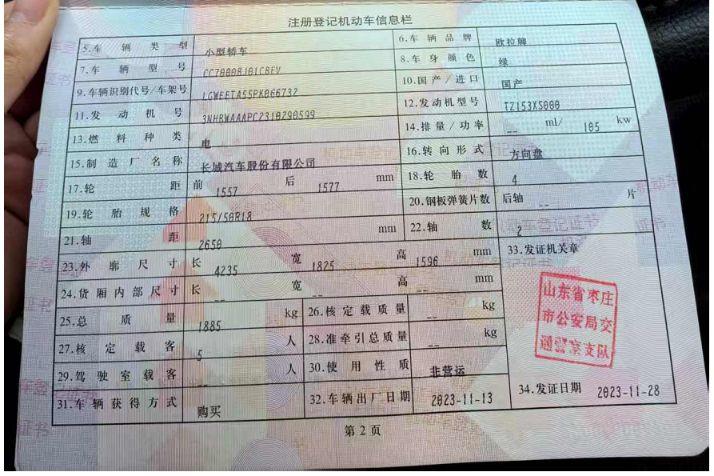 注册登记机动车信息栏
5.车辆类型 小型轿车 6.车辆品牌 欧拉牌
7.车辆型号 CC7000BJ01CBEV 8.车身颜色 绿
9.车辆识别代号/车架号 LGWEETA55PK066732 10.国产/进口 国产
11.发动机号 3NHBWAAAPC2310290599 12.发动机型号 TZ153XS000
13.燃料种类 电 14.排量/功率 -- ml/ 105 kw
15.制造厂名称 长城汽车股份有限公司 16.转向形式 方向盘
17.轮距 前 1557 后 1577 mm 18.轮胎数 4
19.轮胎规格 215/50R18 20.钢板弹簧片数 后轴 -- 片
21.轴距 2650 mm 22.轴数 2
23.外廓尺寸 长 4235 宽 1825 高 1596 mm 33.发证机关章
24.货厢内部尺寸 长 -- 宽 -- 高 -- mm
25.总质量 1885 kg 26.核定载质量 -- kg
27.核定载客 5 人 28.准牵引总质量 -- kg
29.驾驶室载客 -- 人 30.使用性质 非营运
31.车辆获得方式 购买 32.车辆出厂日期 2023-11-13 34.发证日期 2023-11-28
山东省枣庄
市公安局交
通警察支队
第2页